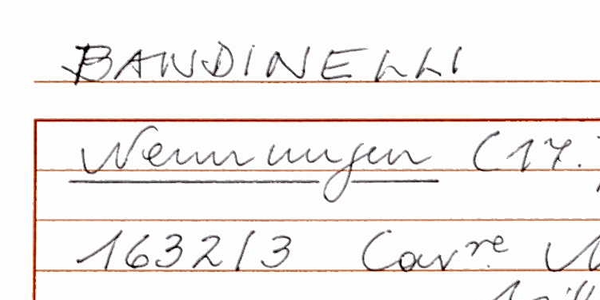 BANDINELLI
Nennungen (17.
1632/3 Cav.re